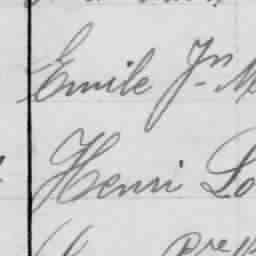 Emile Jn M
Henri Lo